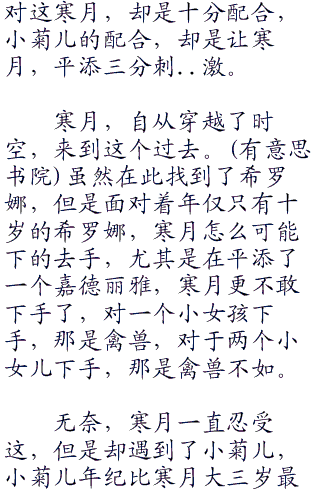 对这寒月，却是十分配合，
小菊儿的配合，却是让寒
月，平添三分刺..激。
寒月，自从穿越了时
空，来到这个过去。(有意思
书院)虽然在此找到了希罗
娜，但是面对着年仅只有十
岁的希罗娜，寒月怎么可能
下的去手，尤其是在平添了
一个嘉德丽雅，寒月更不敢
下手了，对一个小女孩下
手，那是禽兽，对于两个小
女儿下手，那是禽兽不如。
无奈，寒月一直忍受
这，但是却遇到了小菊儿，
小菊儿年纪比寒月大三岁最